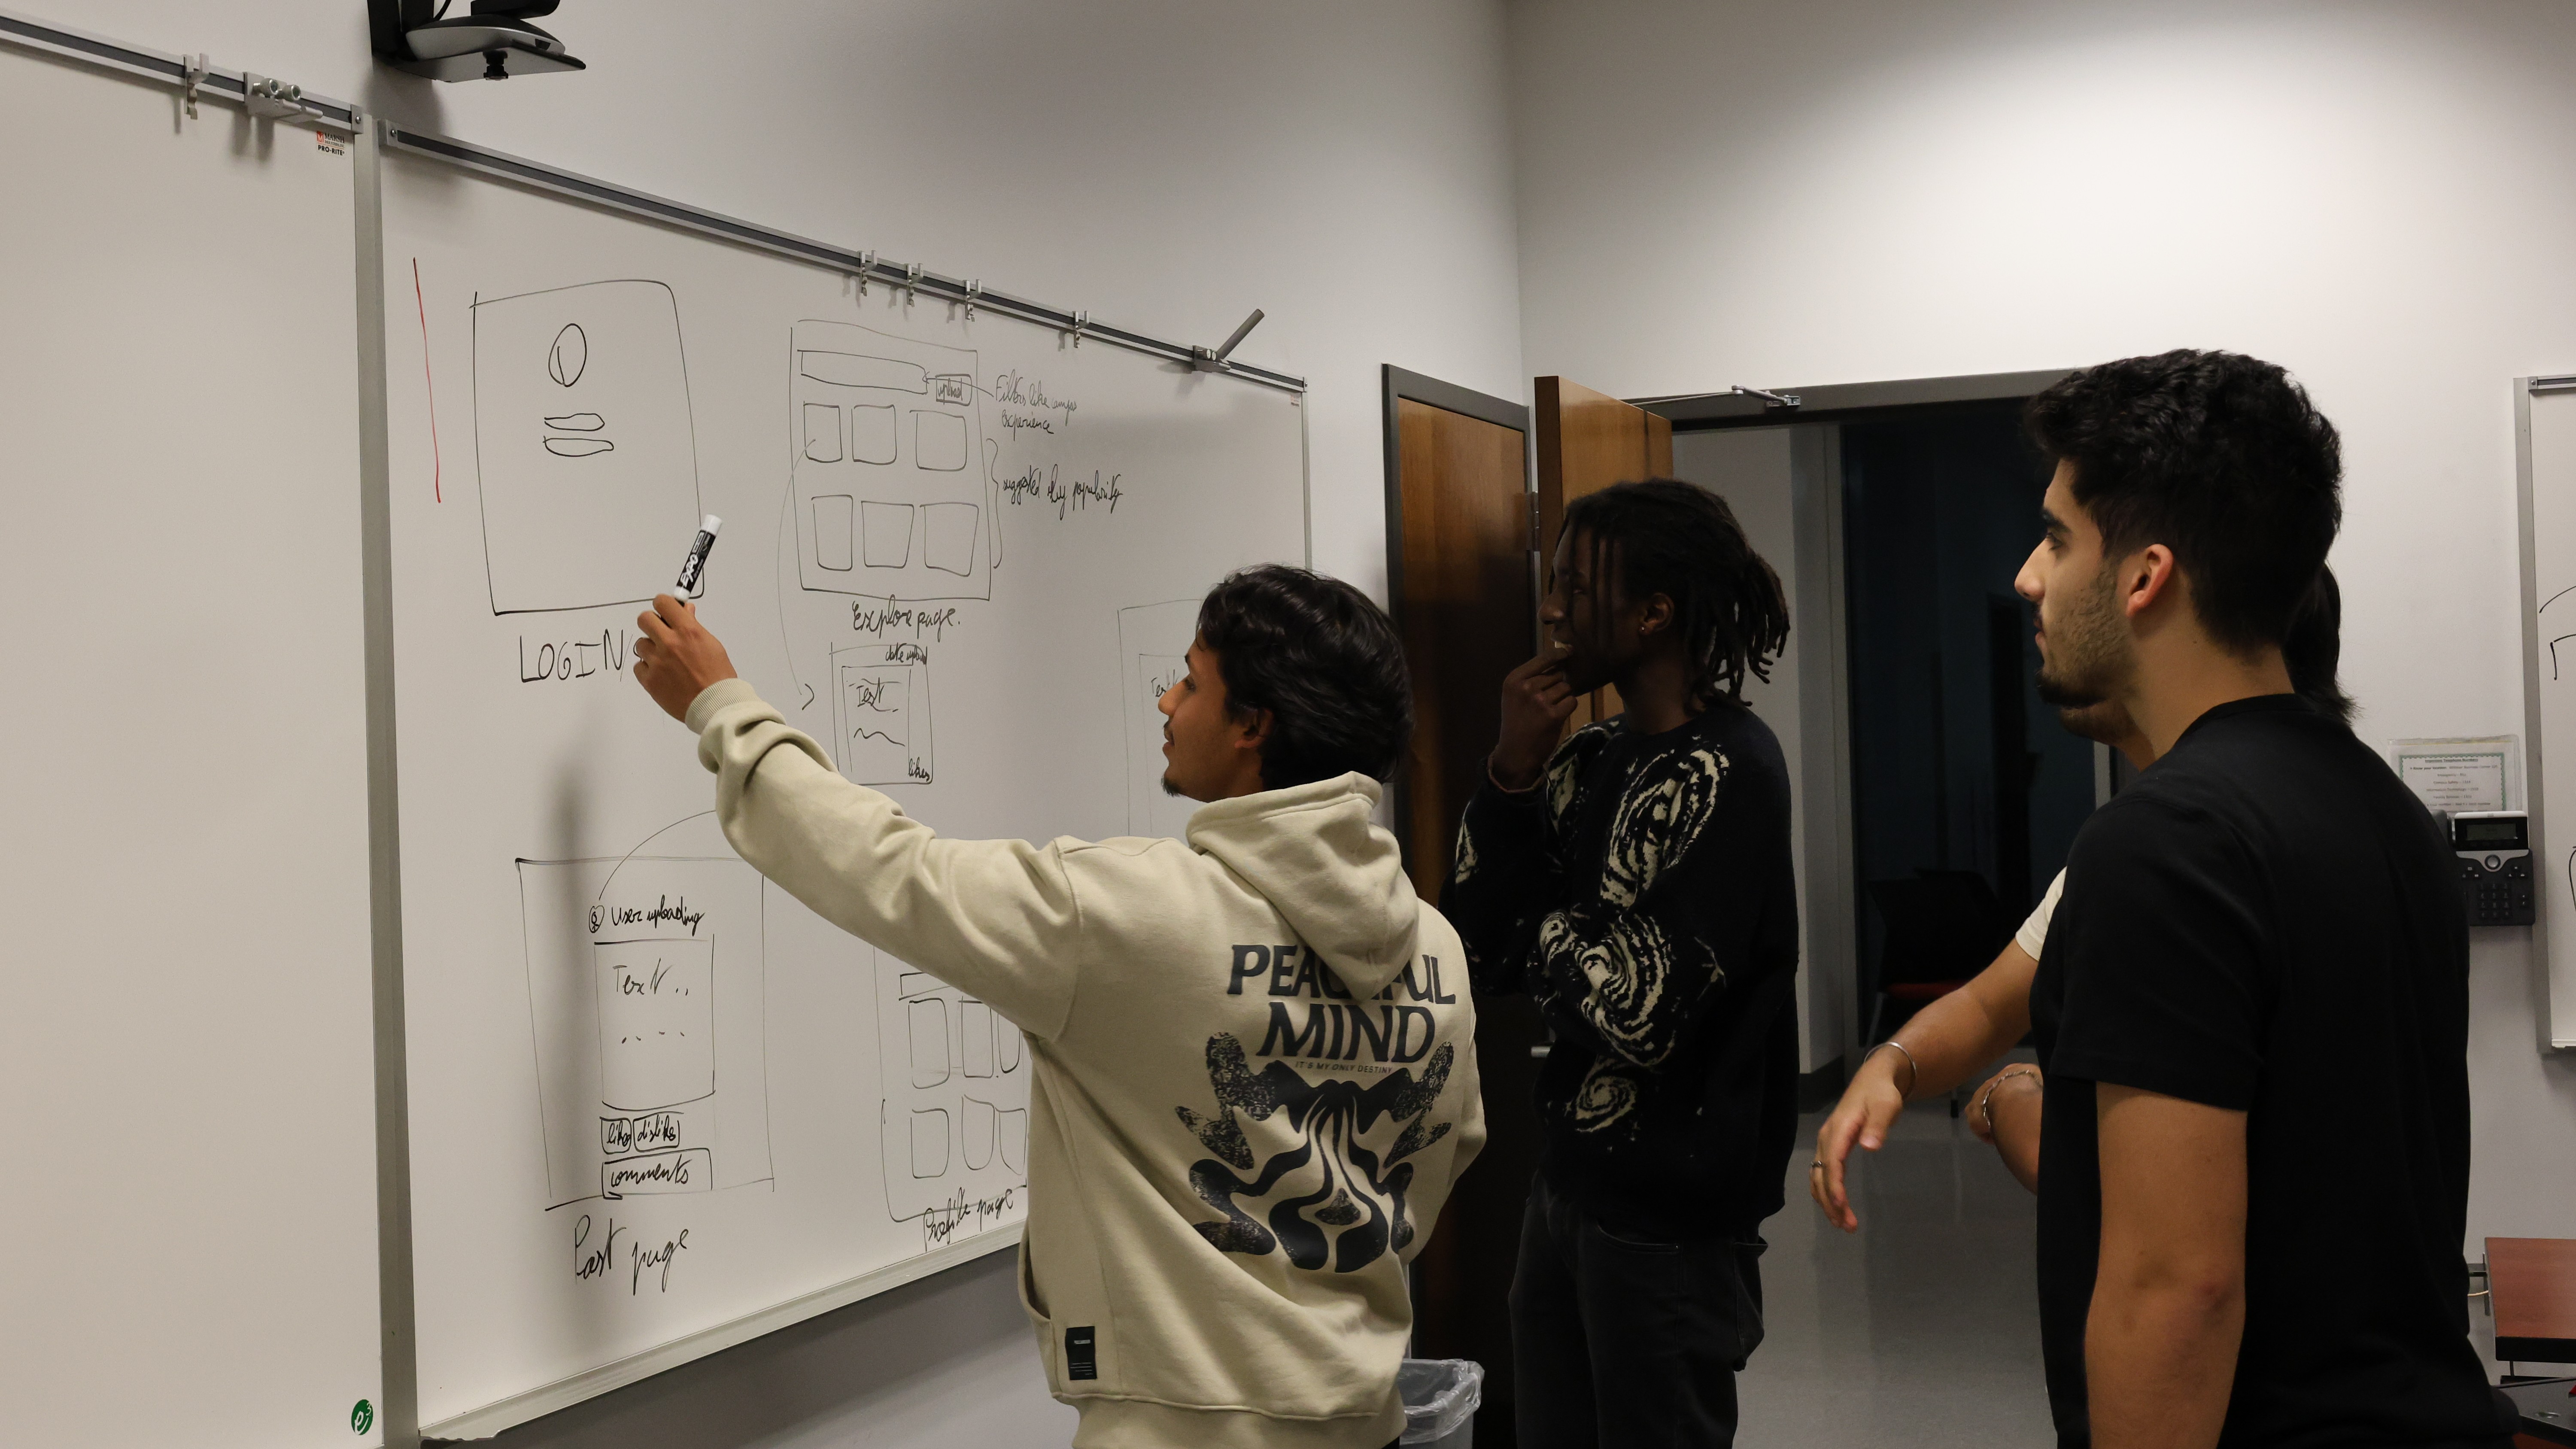 PRO-RITE
LOGIN
upload
Filters like campus
experience
suggested by popularity
Explore page.
date upload
Text
likes
User uploading
Text ..
like
dislike
comments
Post page
Profile page
EXPO
PEACEFUL
MIND
IT'S MY ONLY DESTINY